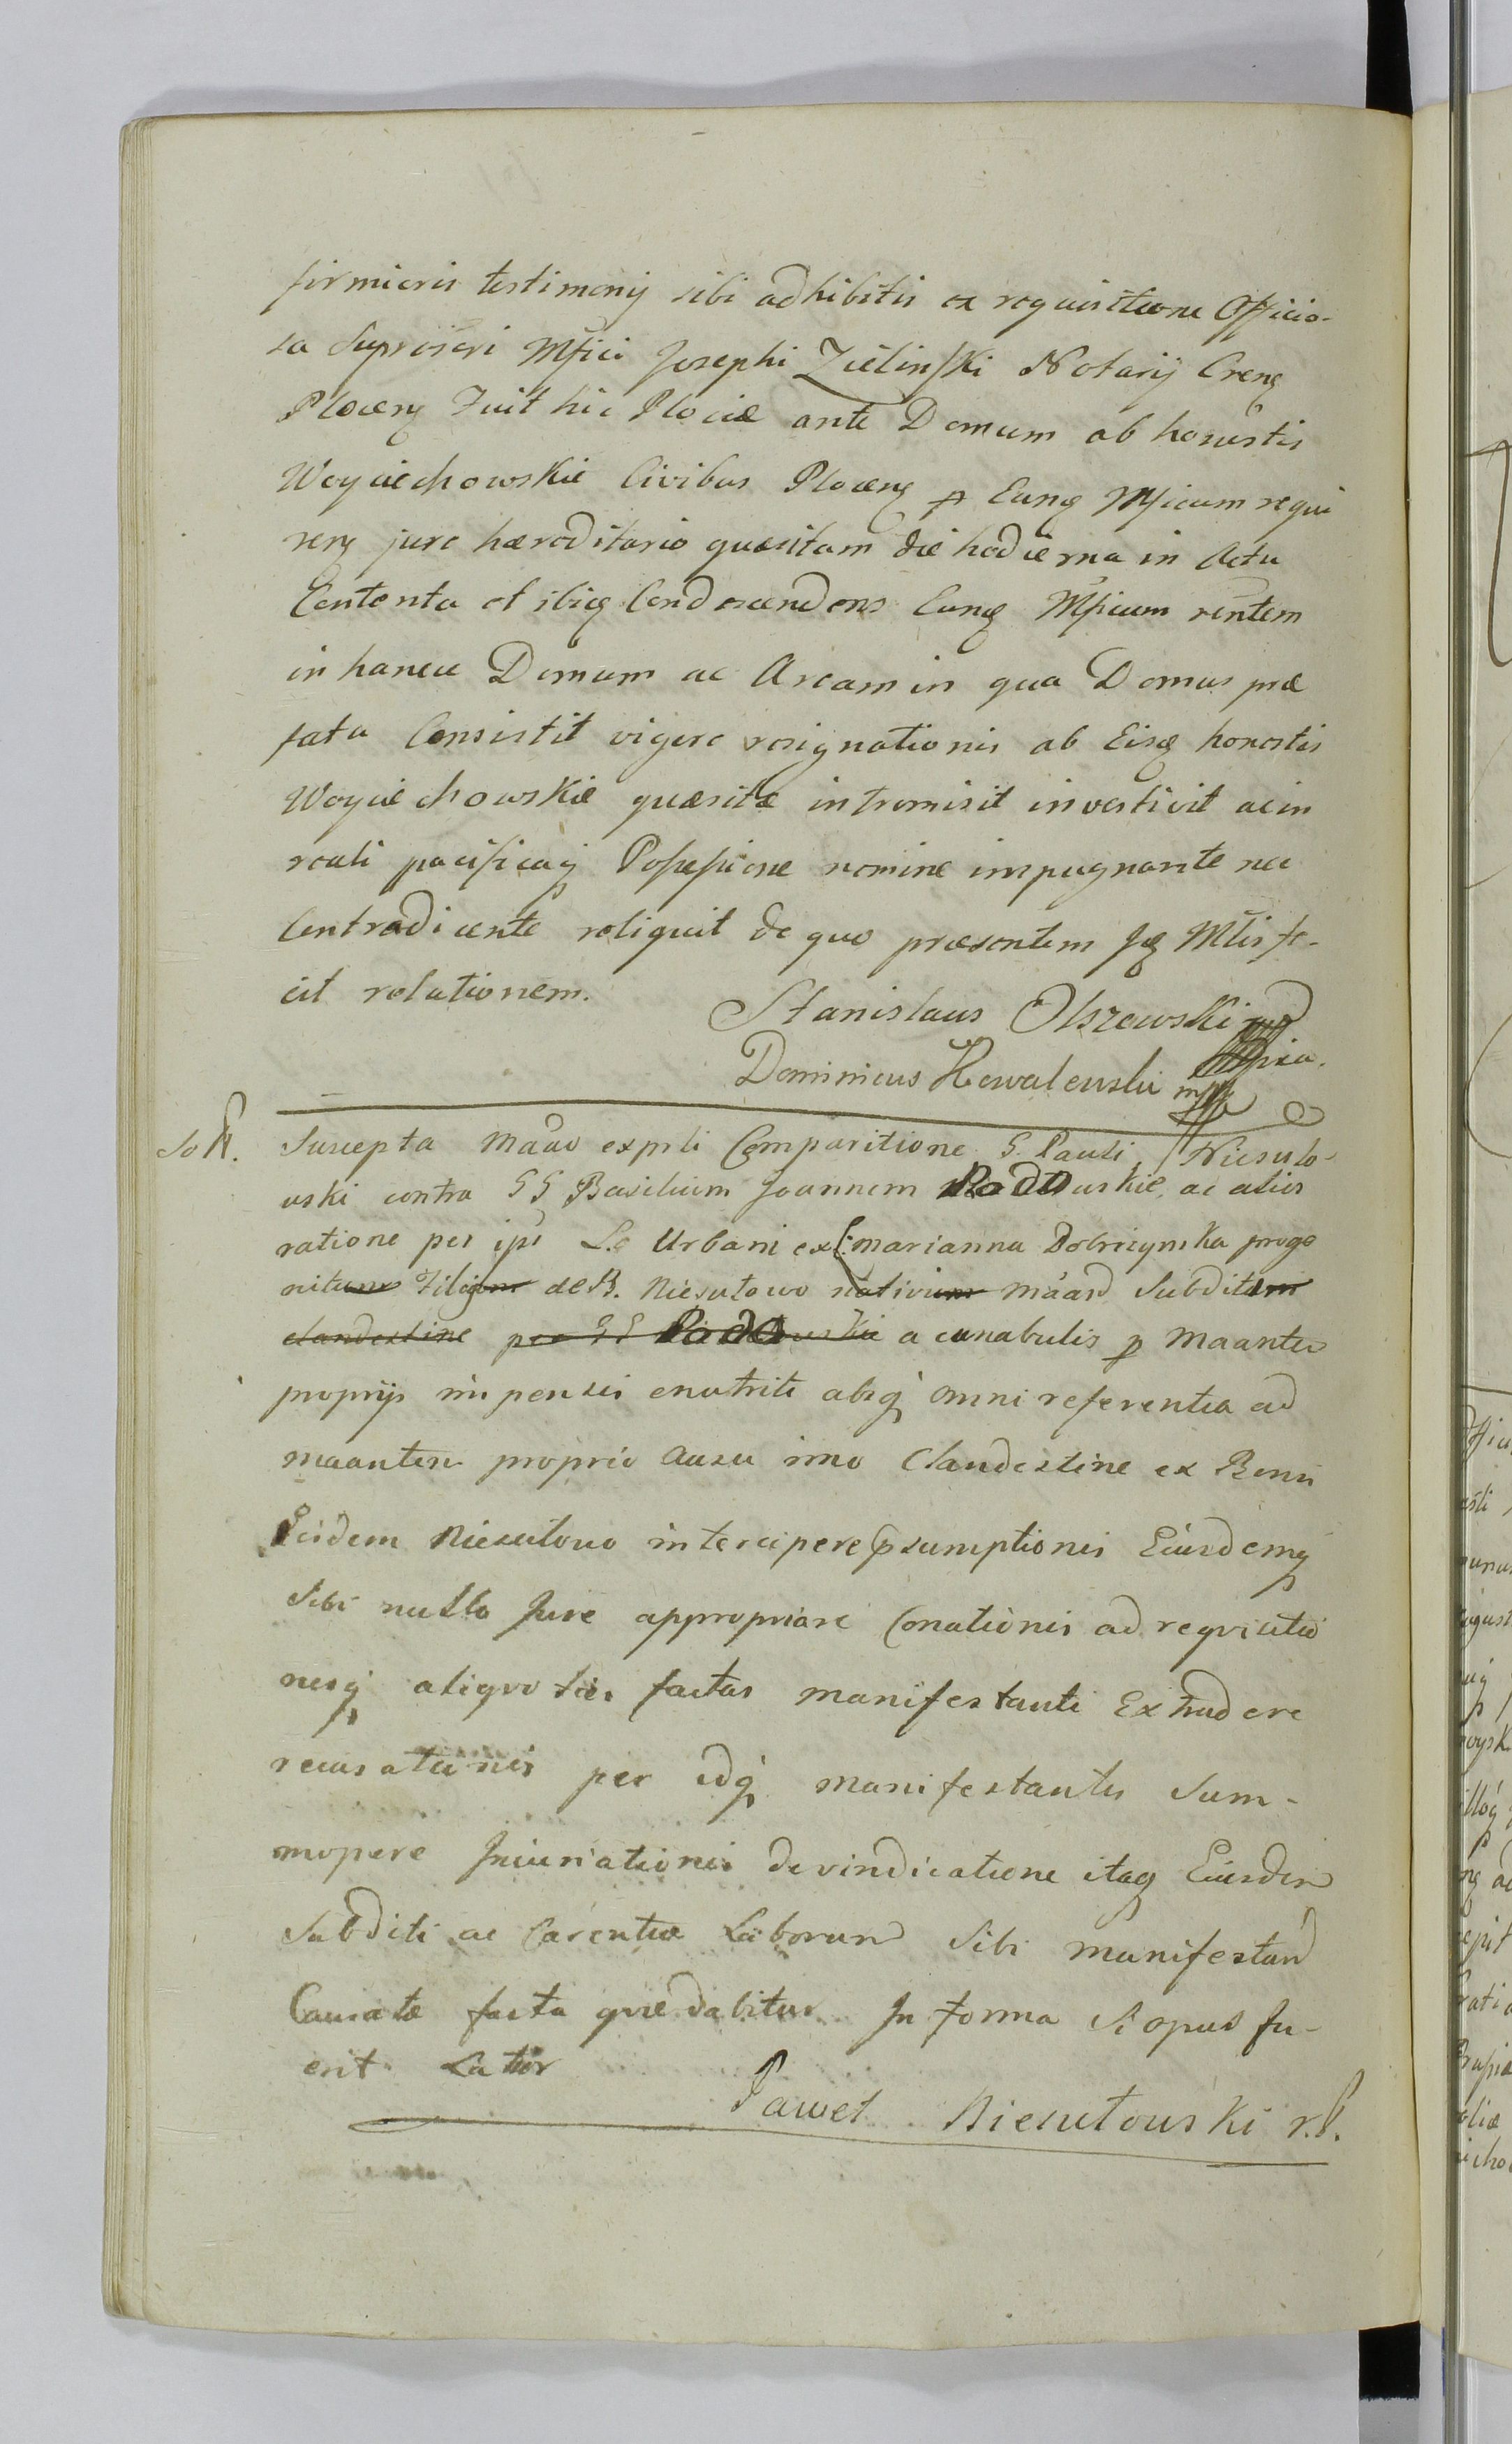 firmioris testimonij sibi adhibitis ex requisitione Officio-
sa Supriscri Mfici Josephi Zielinski Notarij Creng
Ploceng Fuit hic Plociæ ante Domum ab honestis
Woyciechowskie Civibus Ploceng p Eung Mficum requi
reng jure hæreditario quæsitam die hodierna in Actu
Contenta et ibiq Condescendens Eung Mficum rentem
in hance Domum ac Aream in qua Domus præ
fata Consistit vigore resignationis ab Eisq honestis
Woyciechowskie quæsitæ intromisit investivit ac in
reali pacificaq Possessione nemine impugnante nec
Contradicente reliquit de quo præsentem Jq Mtis fe-
cit relationem.
Stanislaus Olszewski
Dominicus Kowalewski mp
Suscepta Maão exprli Comparitione G. Pauli Niesulo-
wski contra GG Basilium Joannem Radowskie ac alios
ratione per ips L. Urbani ex L: Marianna Dobrzynska proge
nitum Filium de B. Niesulowo nativum Maand Subditum
clandestine per GG Radowskie a cunabulis p Maantes
propriis impensis enutriti absq omni referentia ad
maantem proprio ausu imo Clandestine ex Bonis
Eisdem Niesulowo intercipere psumptionis Eiusdemq
Sibi nullo Jure appropriare Conationis ad requisitio
nesq aliquoties factas manifestanti Extradere
recusationis per idq manifestantis Sum-
mopere Iniuriationis devindicatione itaq Eiusdem
Subditi ac Carentiæ Laborum Sibi manifestan
Causatæ facta quæ dabitur In forma Si opus fu-
erit Latior
Paweł Niesułowski r.P.